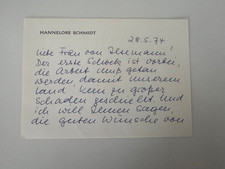 HANNELORE SCHMIDT
28.5.74
liebe Frau von Ilsemann!
Der erste Schock ist vorbei,
die Arbeit muß getan
werden, damit unserem
Land kein zu großer
Schaden geschieht. Und
ich will Ihnen sagen,
die guten Wünsche von